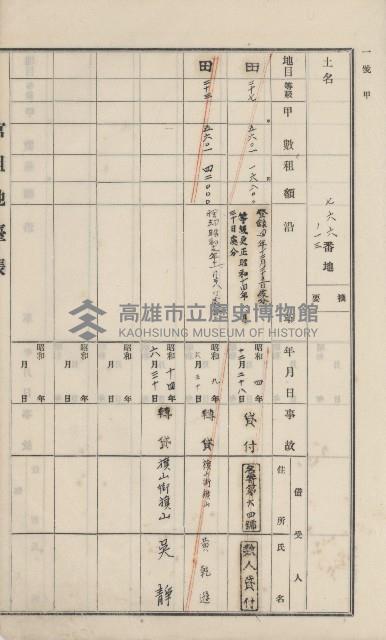 一號甲
土名
七六六
ノ一三
番地
摘要
地目 等級 甲數 租額 沿革
年月日 事故 住所 氏名
借受人
田 二十七 五六〇一 一六八〇〇
等級更正昭和十四年
三十日處分
昭和 四年
十二月二十八日
貸付
名寄第六四號
數人貸付
田 二十三 五六〇一 四二〇〇〇
昭和 九年
月 日
轉貸
旗山街旗山
黃乾
昭和 十四年
六月三十日
轉貸
旗山街旗山
吳靜
昭和 年
月 日
昭和 年
月 日
昭和 年
月 日
官租地臺帳
高雄市立歷史博物館
KAOHSIUNG MUSEUM OF HISTORY